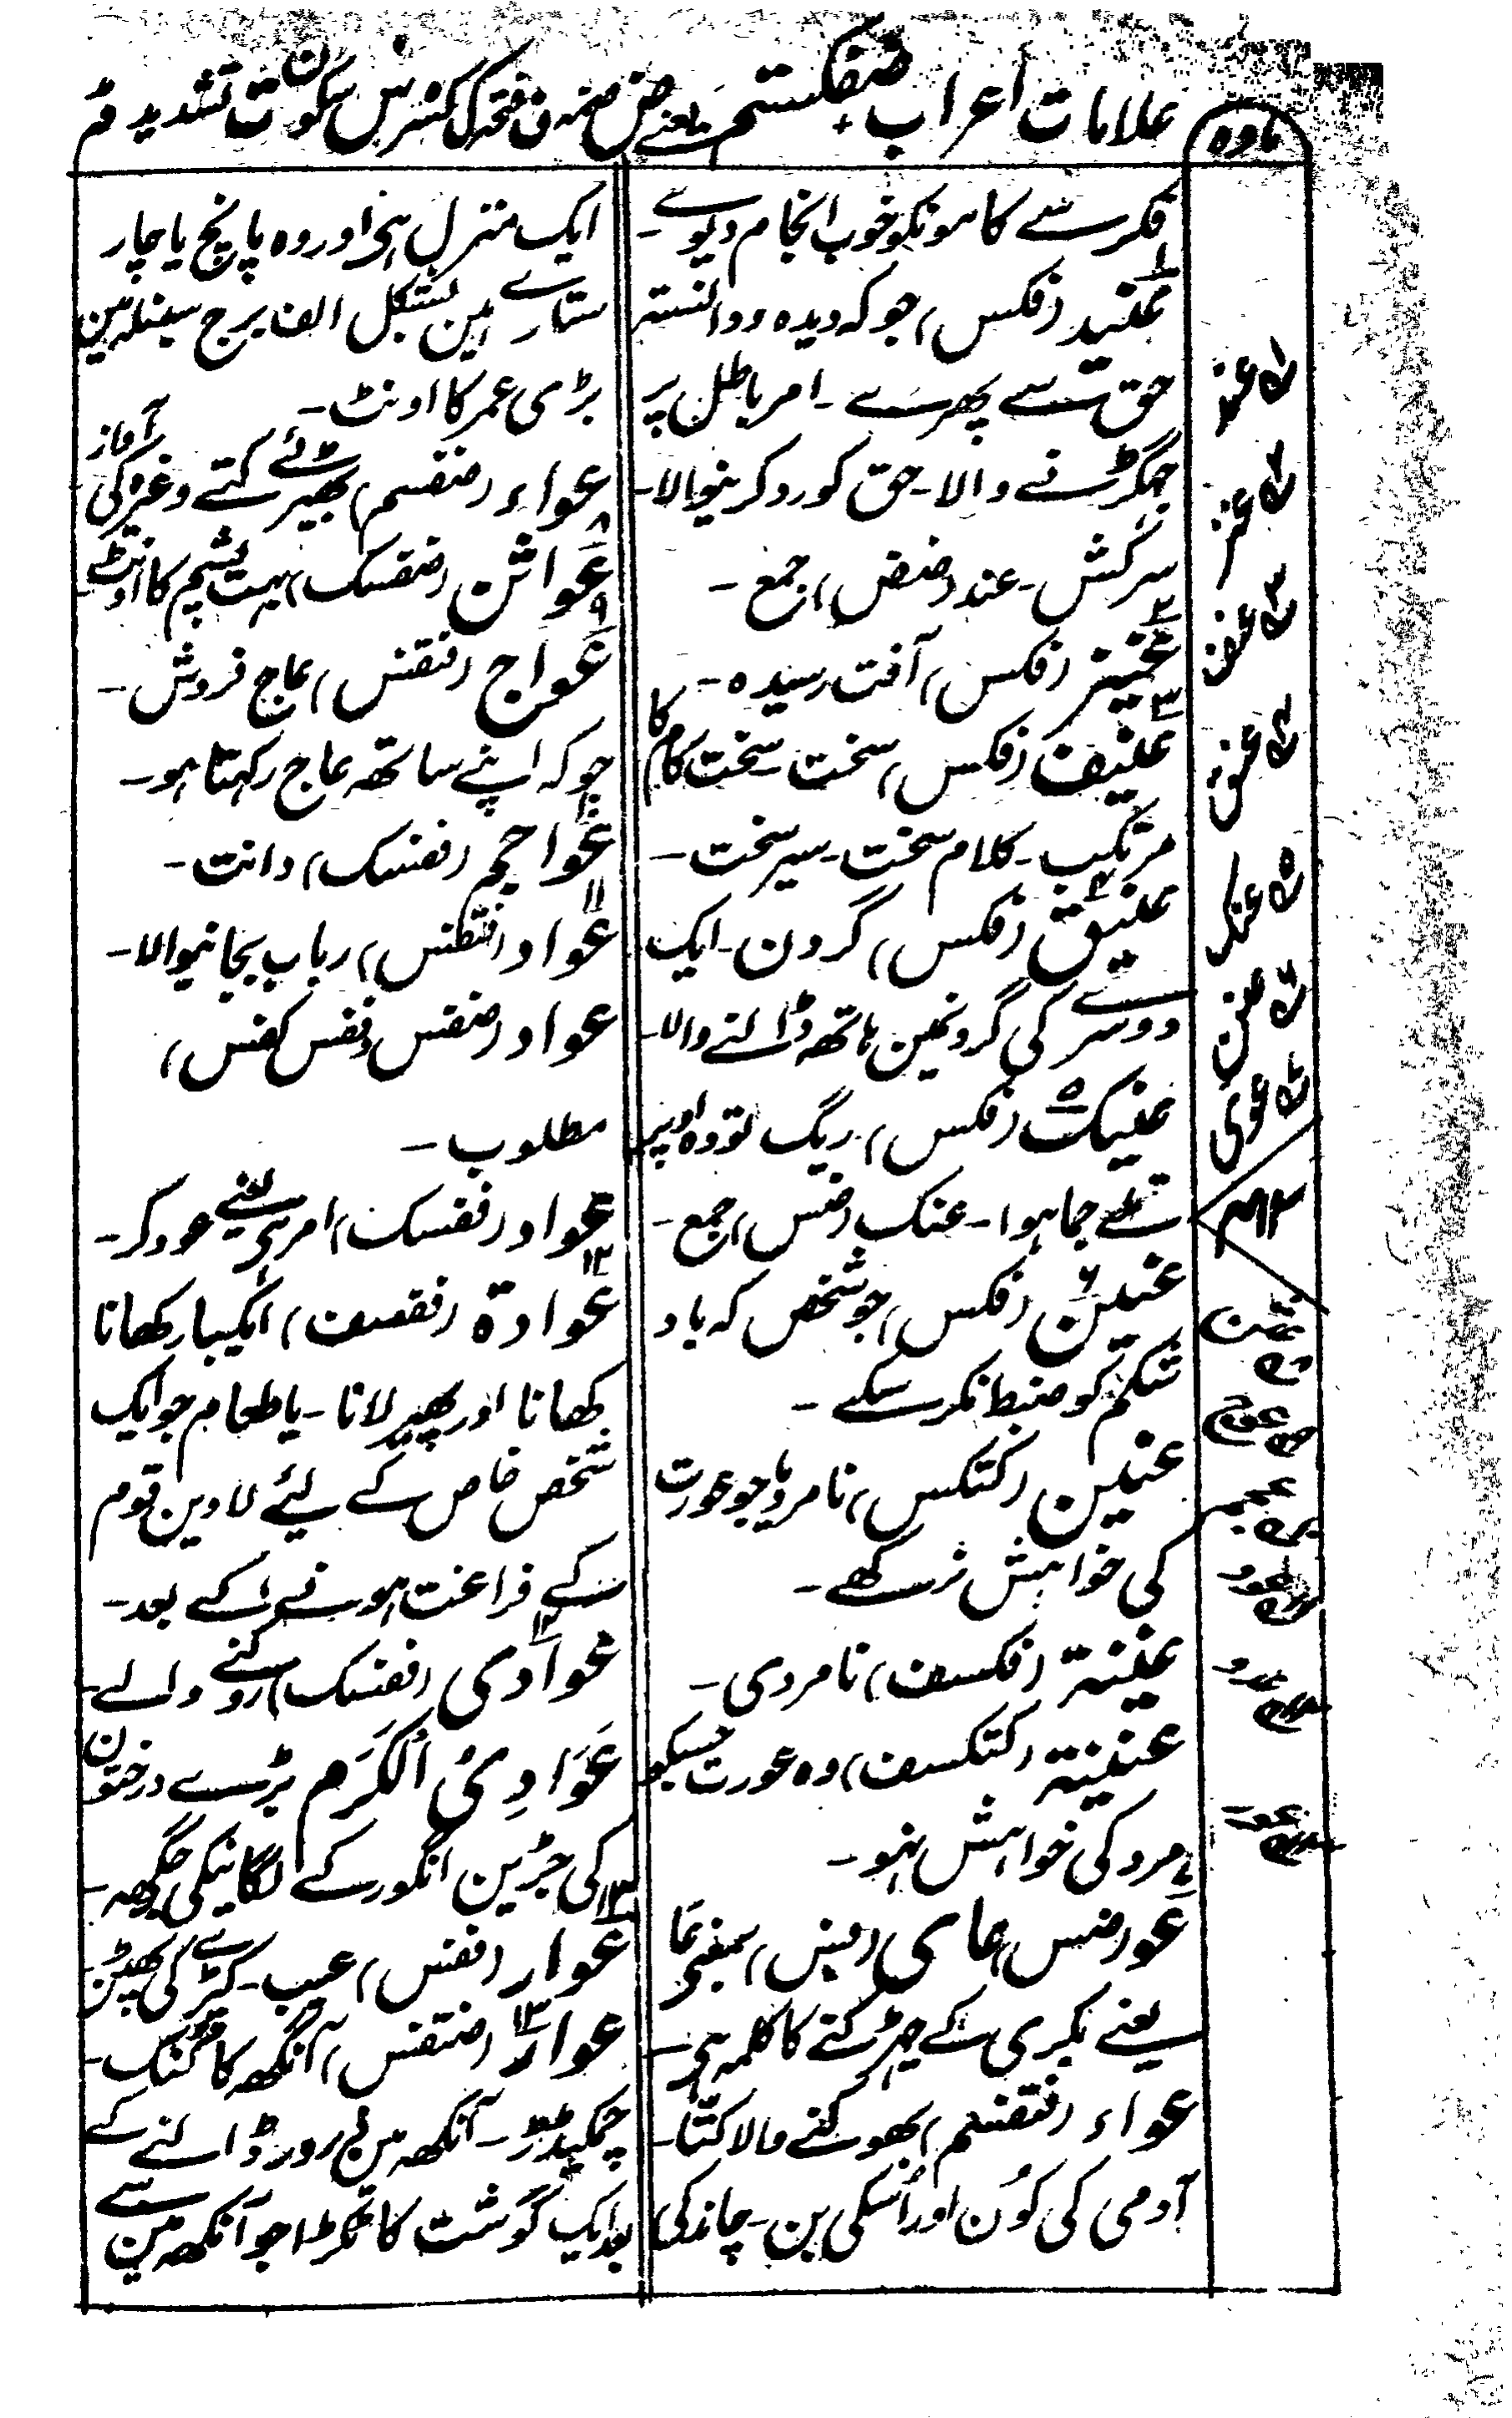 علامات اعراب ضفکستم یعنے ض ضمہ ف فتحہ ک کسرہ س سکون ت تشدید م مد
مادہ
فکر سے کامونکو خوب انجام دیوے۔
عنید (فکس) جو کہ دیدہ ودانستہ
حق سے پھرے۔ امر باطل پر
جھگڑنے والا۔ حق کو رد کرنیوالا۔
سرکش۔ عند (ضض) جمع۔
عنیز (فکس) آفت رسیدہ۔
عنیف (فکس) سخت۔ سخت کام کا
مرتکب۔ کلام سخت۔ سیر سخت۔
عنیق (فکس) گردن۔ ایک
دوسرے کی گردنمین ہاتھ ڈالنے والا۔
عنیک (فکس) ریگ تودہ اوپر
تلے جما ہوا۔ عنک (ضس) جمع۔
عنین (فکس) جو شخص کہ باد
شکم کو ضبط نکر سکے۔
عنین (کتکس) نامرد یا جو عورت
کی خواہش نرکھے۔
عنینة (فکسف) نامردی۔
عنینة (کتکسف) وہ عورت جسکو
مرد کی خواہش نہو۔
عو (ضس) عای
یعنے بکری کے جھڑکنے کا کلمہ ہی۔
عواء (فتفسم) بھوکنے والا کتا۔
آدمی کی کون اور اُسکی بن۔ چاند کی
ایک منزل ہی اور وہ پانچ یا چار
ستارے ہین بشکل الف برج سنبلہ مین
بڑی عمر کا اونٹ۔
عواء (ضفسم) بھیڑئے کتے وغیرہ کی آواز
عواثن (ضفسک) بہت پشم کا اونٹ۔
عواج (فتفس) عاج فروش۔
جو کہ اپنے ساتھ عاج رکہتا ہو۔
عواجم (ففسک) دانت۔
عواد (فتفس) رباب بجانیوالا۔
عواد (ضفس ففس کفس)
مطلوب۔
عواد (ففسک) امر ہی یعنے عود کر۔
عوادة (ففسف) ایکبار کھانا
کھانا اور پھیر لانا۔ یا طعام جو ایک
شخص خاص کے لیئے لاوین قوم
کے فراغت ہونے کے بعد۔
عوادی (ففسک) روکنے والے۔
عَوَادِیُ الکَرَم بڑے درختون
کی جڑین انگور کے لگانیکی جگھہ۔
عوار (ففس) عیب۔ کپڑے کی پھٹن
عوار (ضتفس) آنکھ کا کنک۔
چمگیدڑ۔ آنکھ مین ذرور ڈالنے کے
بعد ایک گوشت کا ٹکڑا جو آنکھ مین سے
عند
عنز
عنف
عنق
عنک
عنن
عوی
عثن
عوج
عجم
عود
عدو
عور